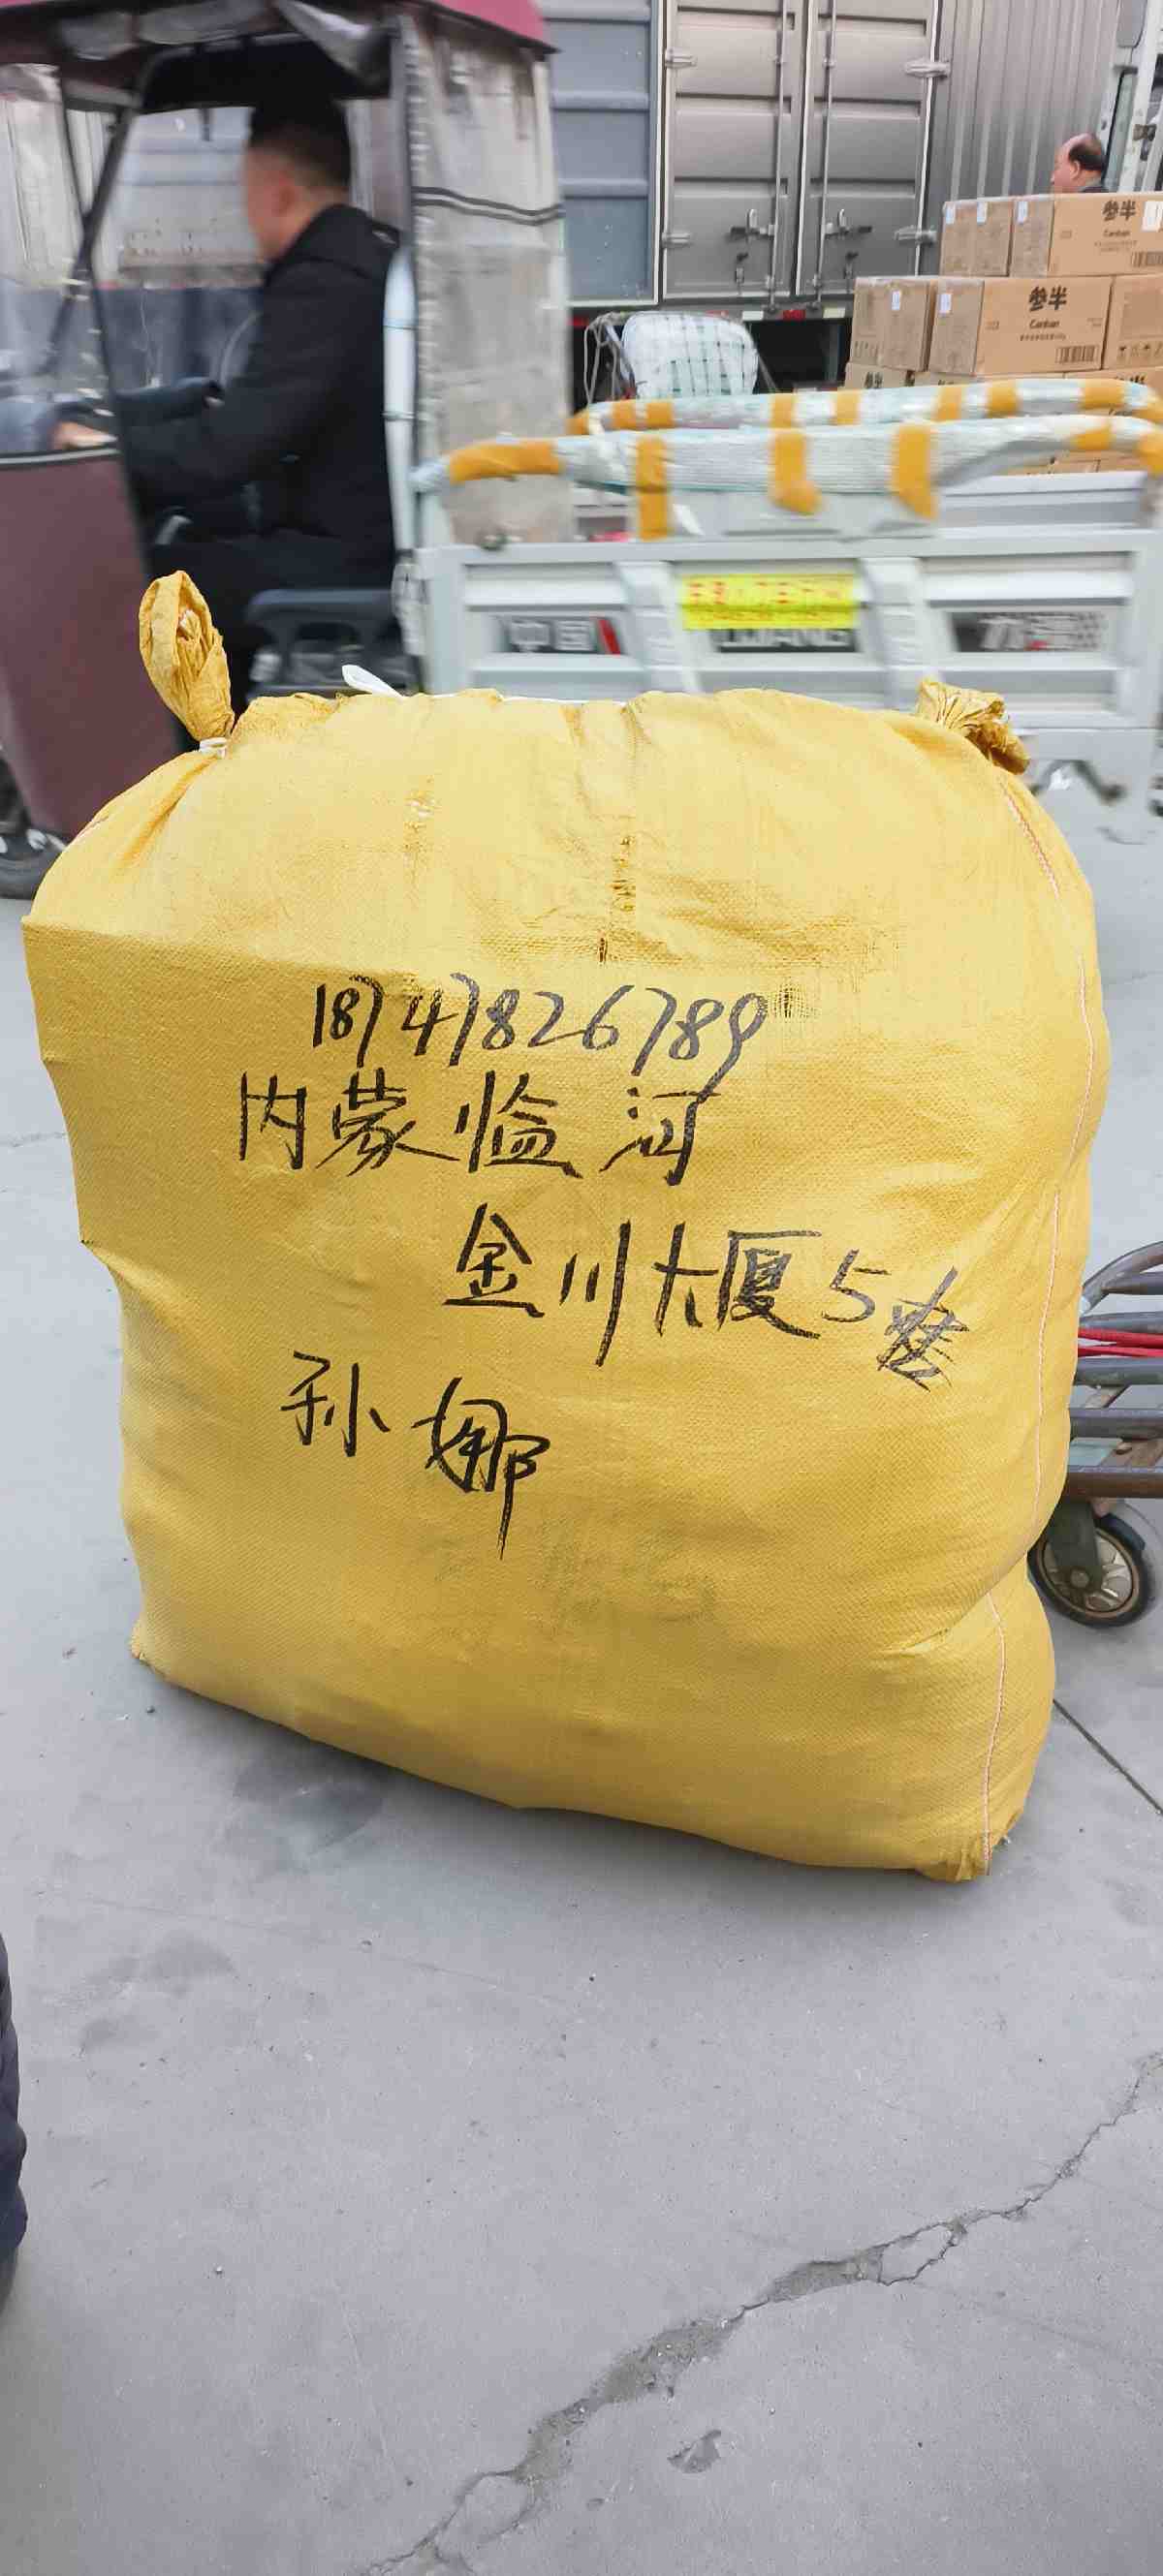 参半
Canban
参半
Canban
参半
中国
18747826789
内蒙临河
金川大厦5楼
孙娜